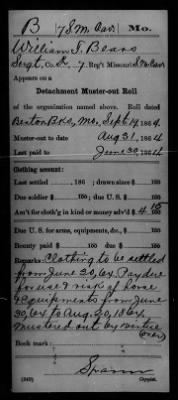 B | 7 S.M. Cav. | Mo.
William S. Beard
Sergt, Co. K, 7 Reg't Missouri S M Cav
Appears on a
Detachment Muster-out Roll
of the organization named above. Roll dated
Benton Bks, Mo, Sept 19, 1864.
Muster-out to date Aug 31, 1864
Last paid to June 30, 1864
Clothing account:
Last settled , 186 ; drawn since $ 100
Due soldier $ 100; due U. S. $ 100
Am't for cloth'g in kind or money adv'd $ 4 45 100
Due U. S. for arms, equipments, &c., $ 100
Bounty paid $ 100; due $ 100
Remarks: Clothing to be settled
from June 30, 64. Pay due
for use & risk of horse
& equipments from June
30, 64 to Aug. 30, 1864
Mustered out by virtue
(over)
Book mark:
Spann
(342) Copyist.